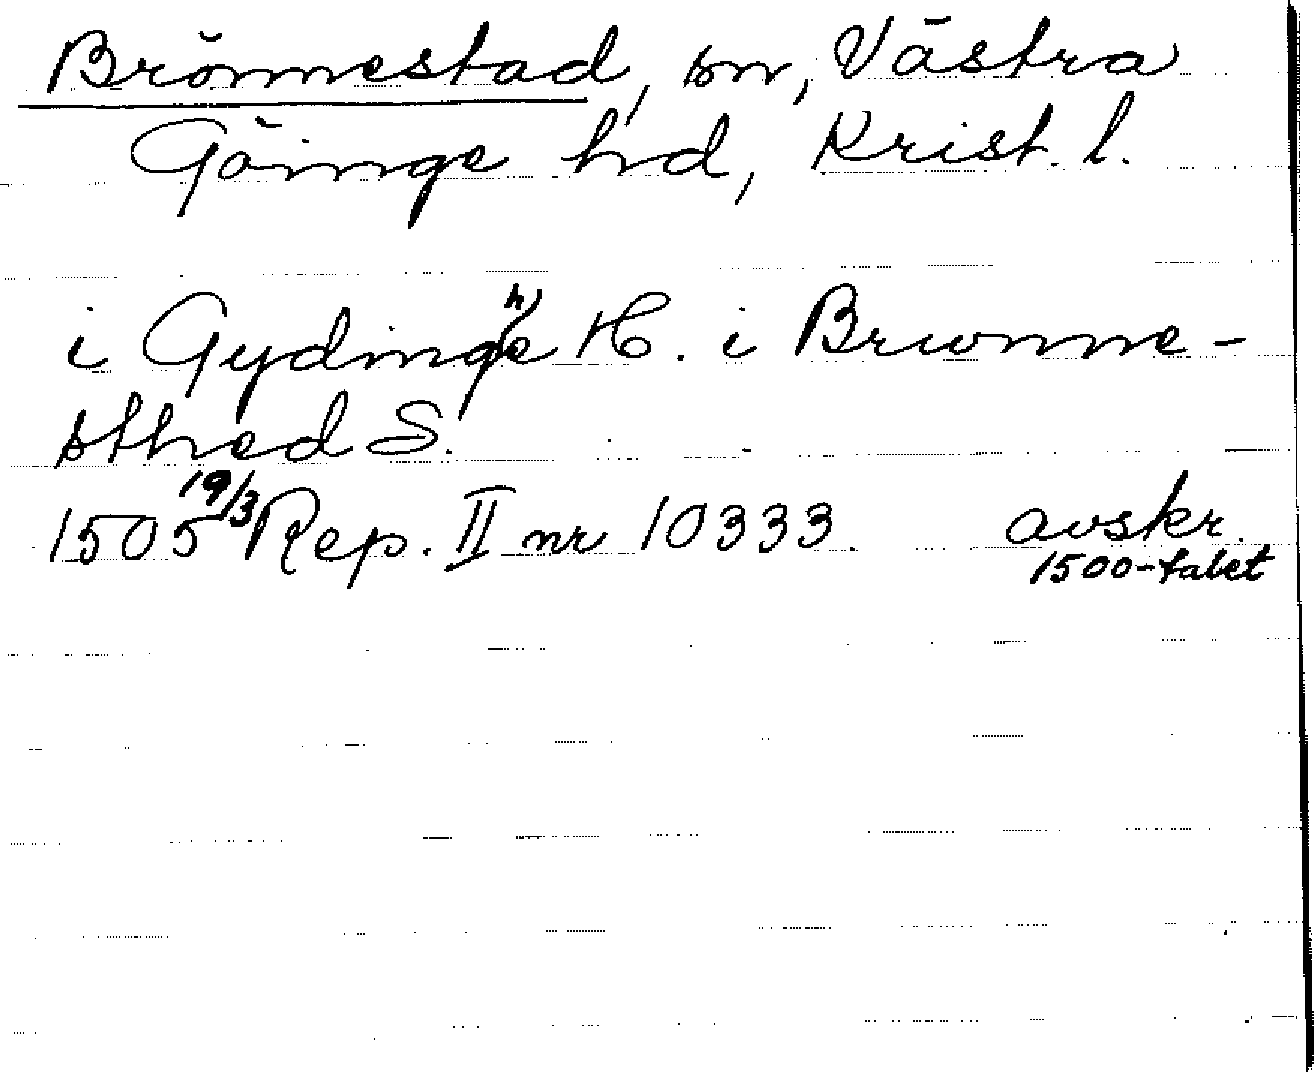 Brönnestad, sn, Västra
Göinge hd, Krist. l.
i Gydinghe H. i Brwnne-
sthed S.
1505 19/3 Rep. II nr 10333. avskr.
1500-talet